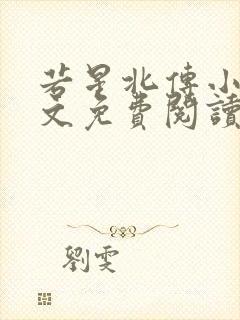 若星北傅小
文免費閱讀
劉雯